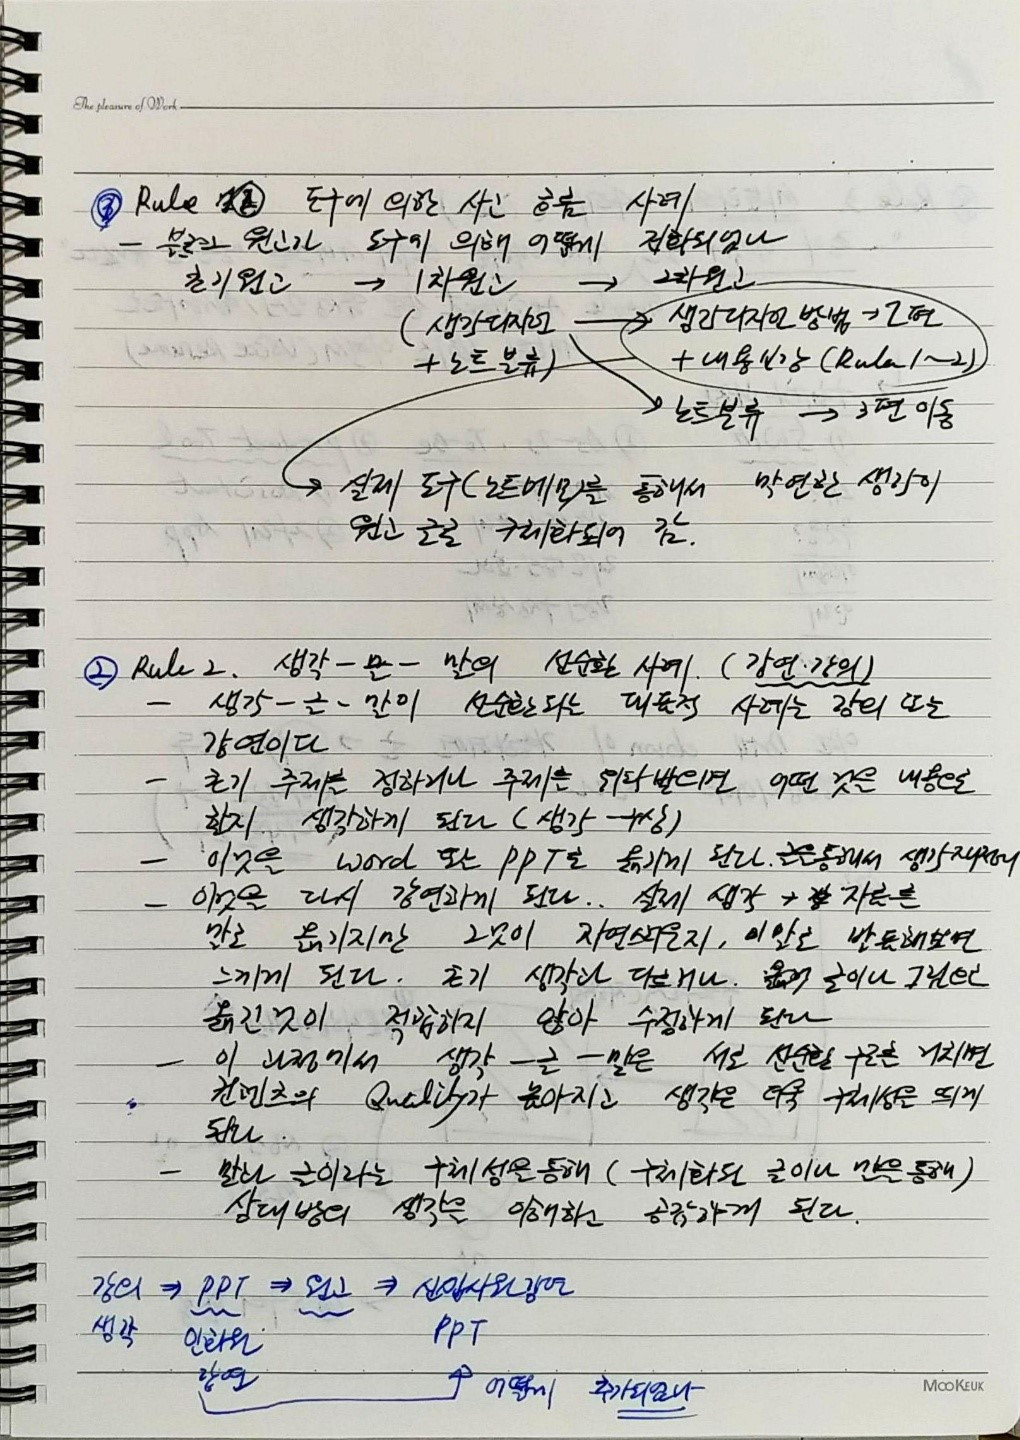 The pleasure of Work
③ Rule ② 도구에 의한 사고 흐름 사례
- 블로그 원고가 도구에 의해 어떻게 진화되었나
초기원고 → 1차원고 → 2차원고
(생각디자인 → 생각디자인 방법 → 2편
+ 노트분류) + 내용보강 (Rule 1~2)
노트분류 → 3편 이동
실제 도구(노트메모)를 통해서 막연한 생각이
원고 글로 구체화되어 감.
② Rule 2. 생각 - 글 - 말의 선순환 사례. (강연·강의)
- 생각 - 글 - 말이 선순환되는 대표적 사례는 강의 또는
강연이다
- 초기 주제를 정하거나 주제를 위탁받으면 어떤 것을 내용으로
할지 생각하게 된다 (생각 구상)
- 이것을 word 또는 PPT로 옮기게 된다. 글을통해서 생각재정리
- 이것을 다시 강연하게 된다.. 실제 생각 → 자료를
말로 옮기지만 그것이 자연스러운지, 이 말로 발표해보면
느끼게 된다. 초기 생각과 다르거나. 글이나 그림으로
옮긴것이 적합하지 않아 수정하게 된다
- 이 과정에서 생각 - 글 - 말은 서로 선순환 구조를 거치면
컨텐츠의 Quality가 높아지고 생각은 더욱 구체성을 띄게
된다.
- 말과 글이라는 구체성을통해 (구체화된 글이나 말을통해)
상대방의 생각을 이해하고 공감하게 된다.
강의 → PPT → 원고 → 신입사원강연
생각 인화원 PPT
강연 어떻게 추가되었나
MOOKEUK